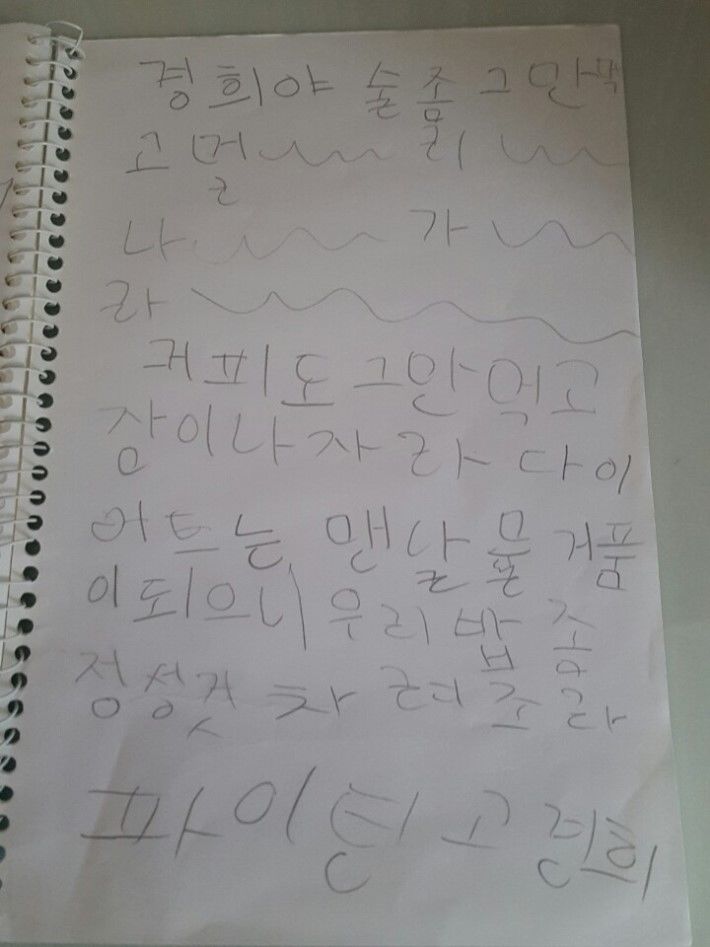 경희야 술좀 그만먹
고 멀~~ 리~~
나~~ 가~~
라~~
커피도 그만 먹고
잠이나 자라 다이
어트는 맨날 물거품
이되으니 우리 밥 좀
정성껏 차려 조라
파이팅 고경희